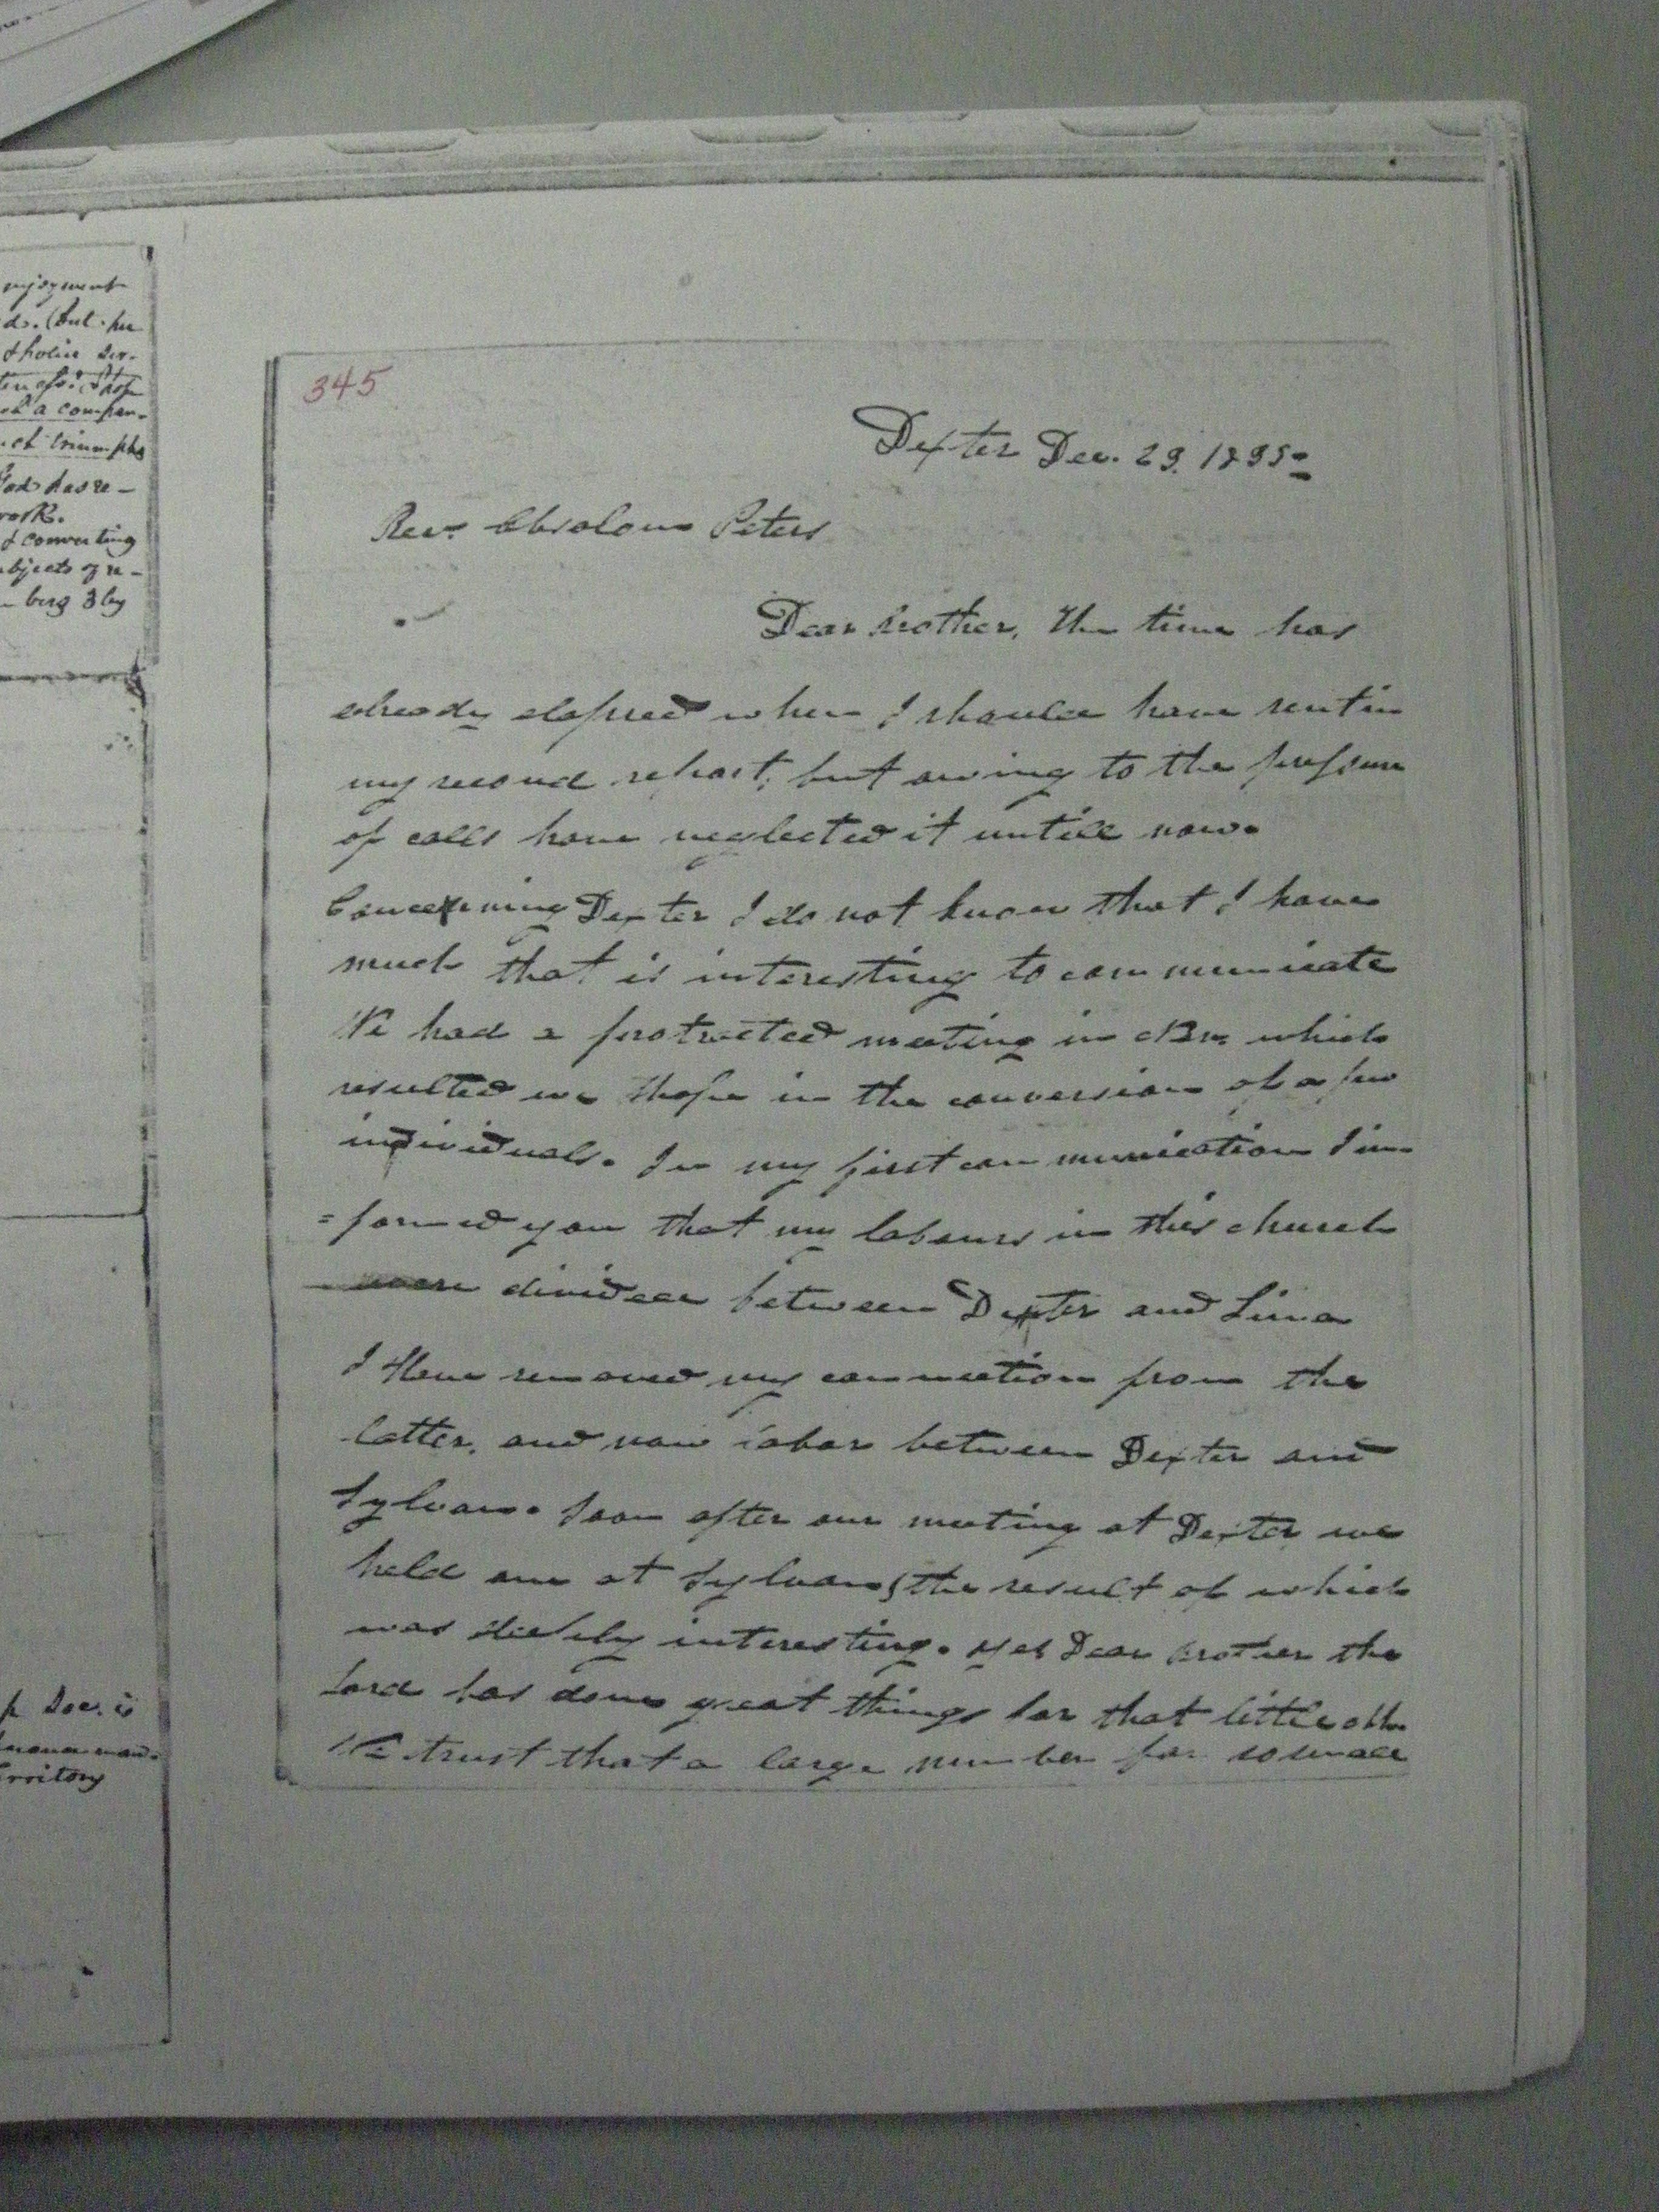 njoyment
ds. (but he
tholic ser-
of a compar-
ct triumphs
God has re-
work.
d converting
bjects of re-
345
Dexter Dec. 29. 1835=
Rev. Absolom Peters
Dear brother, The time has
already elapsed when I should have sent in
my second report, but owing to the pressure
of calls have neglected it untill now.
Concerning Dexter I do not know that I have
much that is interesting to communicate
We had a protracted meeting in which
resulted we Hope in the conversion of a few
individuals. In my first communication I in-
=formed you that my labours in this church
were divided between Dexter and Lima
I Have removed my connection from the
latter, and now labor between Dexter and
Sylvan. Soon after our meeting at Dexter we
held one at Sylvan, the result of which
was interesting. Yes Dear brother the
Lord has done great things for that little
We trust that a large number for so small
Soc. is
rritory